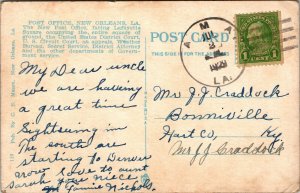 POST OFFICE, NEW ORLEANS, LA.
The New Post Office, facing Lafayette
Square occupying the entire square of
ground, the United States District Court,
U. S. Circuit Court, an appeals, Weather
Bureau, Secret Service, District Attorney
and the other departments of Govern-
ment service.
My Dear uncle
we are having
a great time
Sightseeing in
The south are
starting to Denver
Love to aunt
Sarah your niece
Nannie Nichols
POST CARD
THIS SIDE IS FOR ADDRESS
A M
1929
LA.
1 CENT
Mr J J Craddock
Bonnieville
Hart Co. Ky
Mr J J Craddock